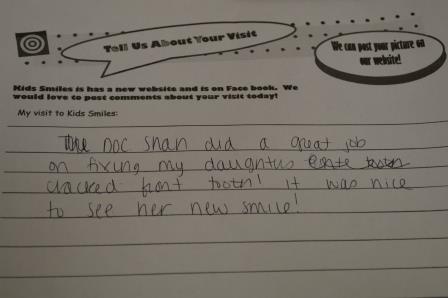 Tell Us About Your Visit
We can post your picture on
our website!
Kids Smiles is has a new website and is on Face book. We
would love to post comments about your visit today!
My visit to Kids Smiles:
The Doc Shan did a great job
on fixing my daughtus
cracked front tooth! It was nice
to see her new smile!